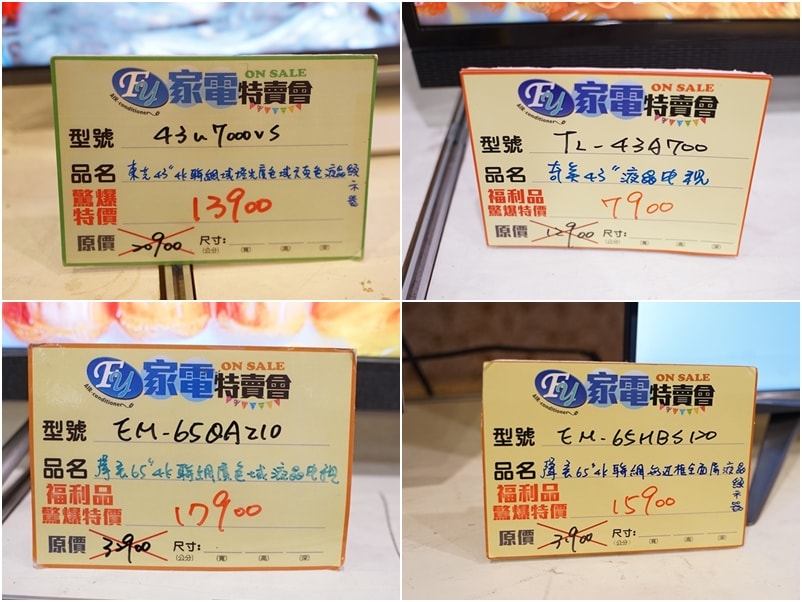 FU 家電特賣會 ON SALE
AIR-conditioner
型號 43U7000VS
品名 東芝43"4K聯網域控光廣色域六真色液晶顯示器
驚爆特價 13900
原價 20900 尺寸:
(公分) (寬) (高) (深)
FU 家電特賣會 ON SALE
AIR-conditioner
型號 TL-43A700
品名 奇美43"液晶电視
福利品
驚爆特價 7900
原價 12900 尺寸:
(公分) (寬) (高) (深)
FU 家電特賣會 ON SALE
AIR-conditioner
型號 EM-65QA210
品名 聲宝65"4K聯網廣色域液晶电視
福利品
驚爆特價 17900
原價 32900 尺寸:
(公分) (寬) (高) (深)
FU 家電特賣會 ON SALE
AIR-conditioner
型號 EM-65HBS120
品名 聲宝65"4K聯網無边框全面屏液晶顯示器
福利品
驚爆特價 15900
原價 31900 尺寸:
(公分) (寬) (高) (深)